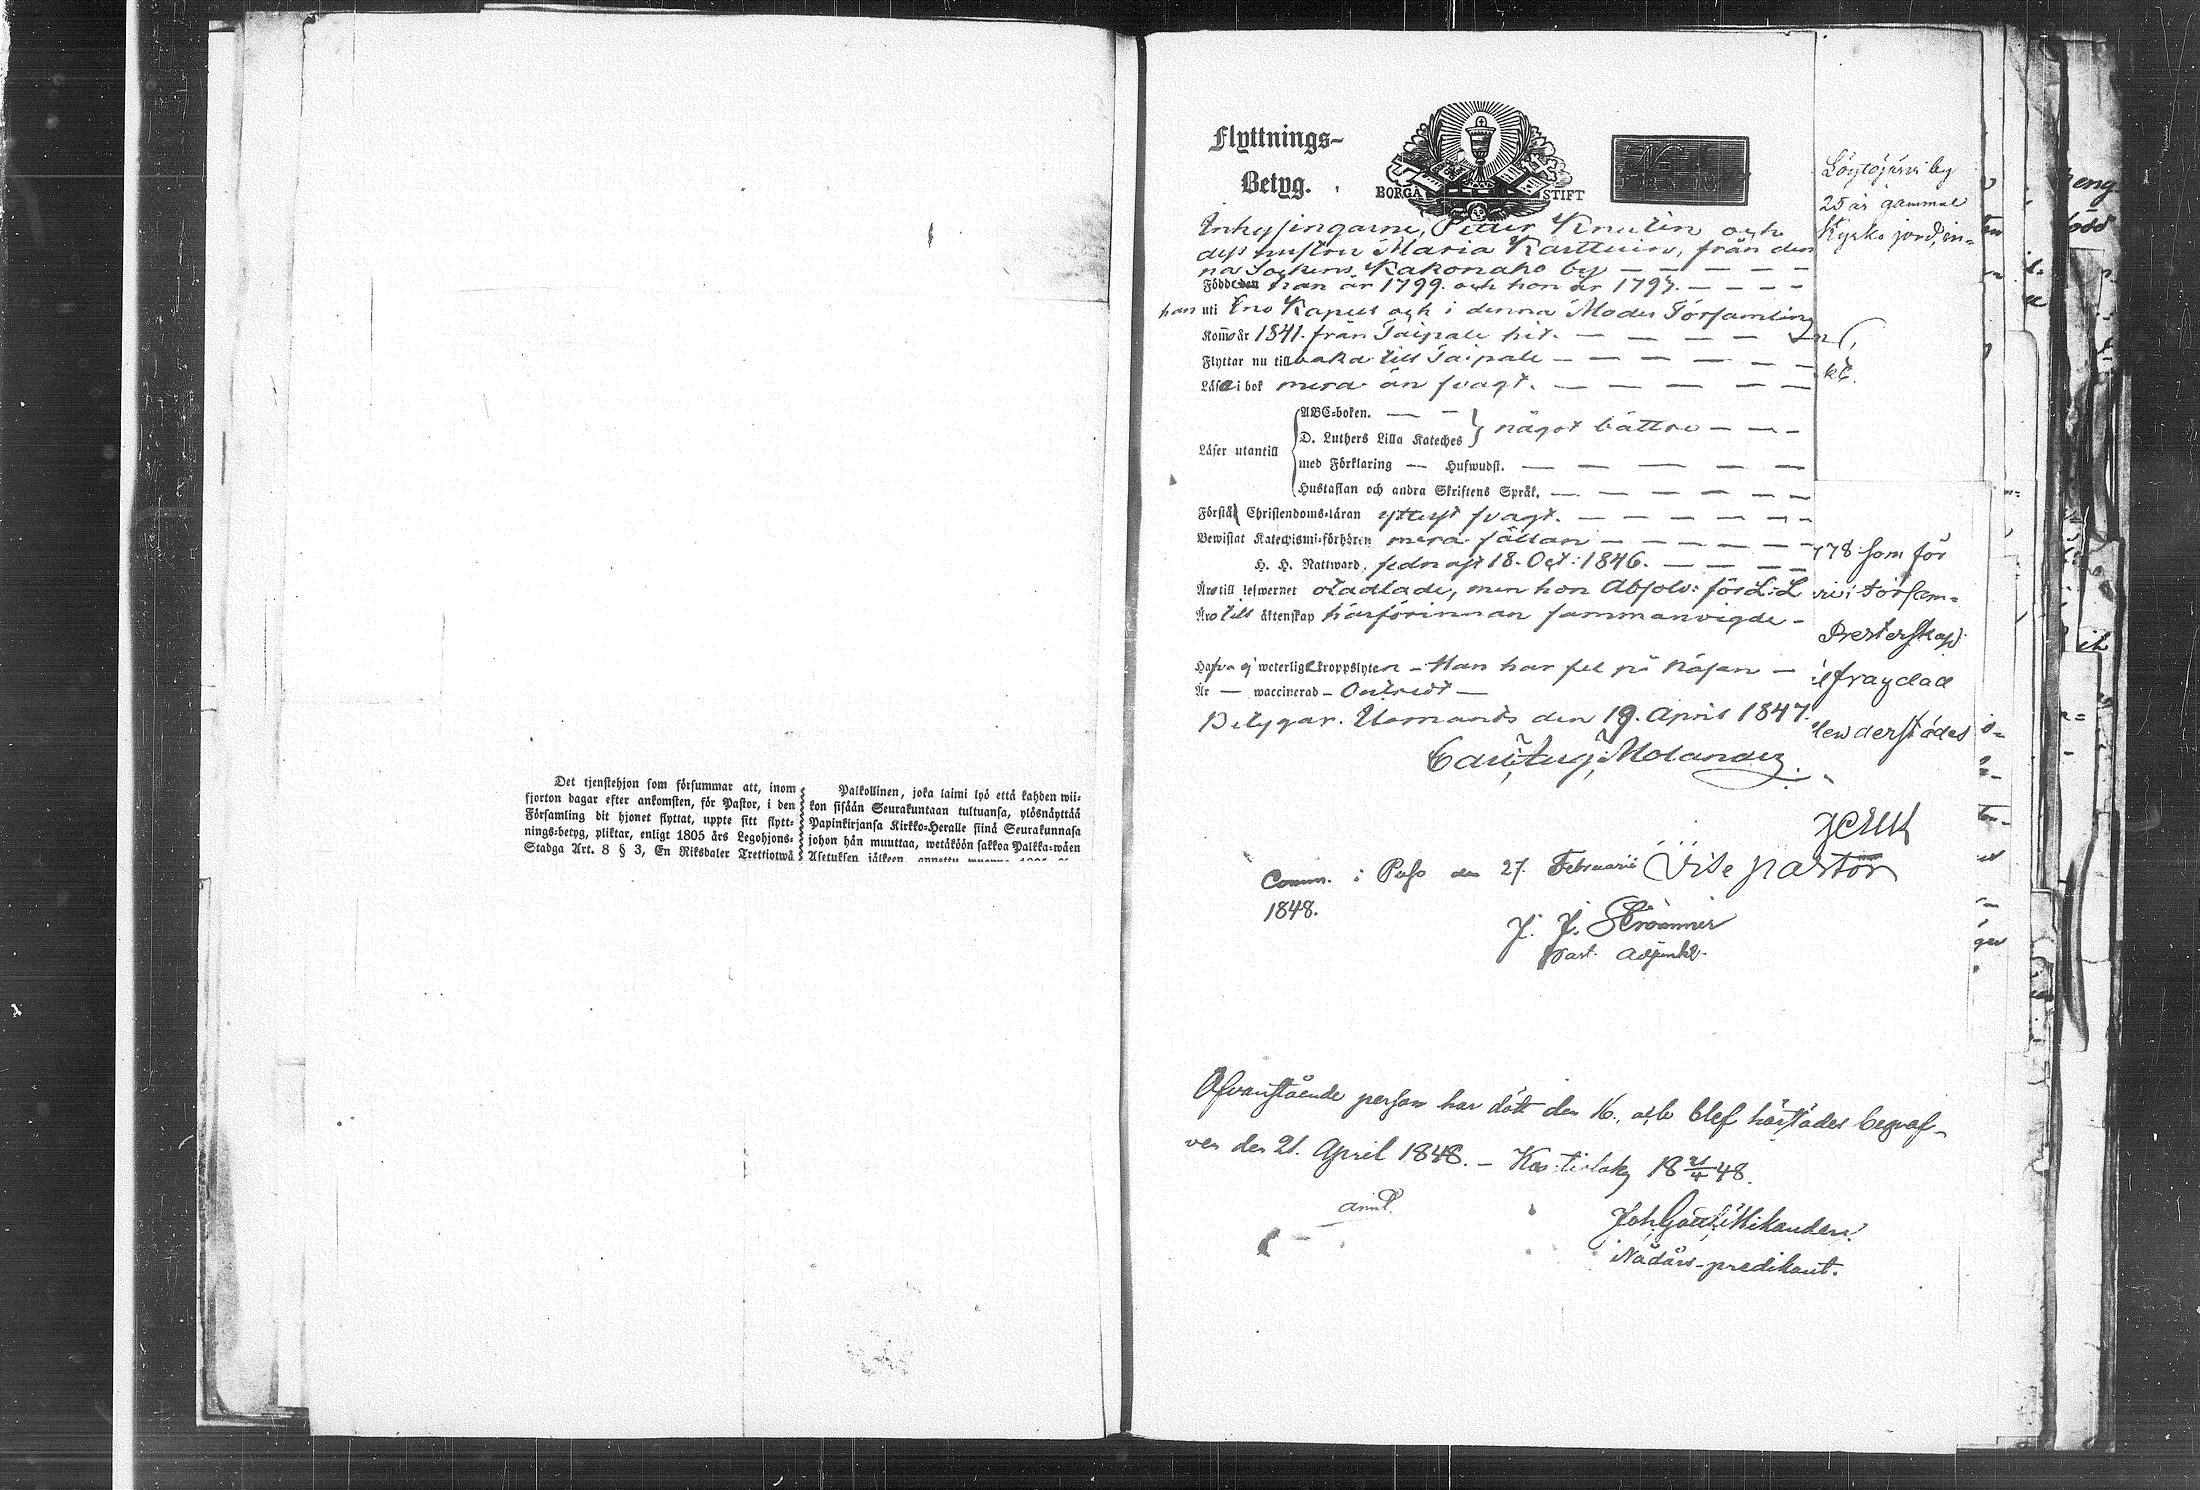 Det tjenstehjon som försummar att, inom
fjorton dagar efter ankomsten, för Pastor, i den
Församling dit hjonet flyttat, uppte sitt flytt-
nings-betyg, pliktar, enligt 1805 års Legohjons-
Stadga Art. 8 § 3, En Riksdaler Trettiotwå
Palkollinen, joka laimi lyö että kahden wii-
kon sisään Seurakuntaan tultuansa, ylösnäyttää
Papinkirjansa Kirkko-Heralle siinä Seurakunnasa
johon hän muuttaa, wetäköön sakkoa Palkka-wäen
Asetuksen jälkeen, annettu wuonna 1805
Flyttnings-
Betyg.
BORGÅ STIFT
Inhysingarne, Petter Knutin och
dess hustru Maria Karttuin, från den
na Sockens Kakonaho by — — — — —
Födde han år 1799. och hon år 1797. — — — —
han uti Eno Kapell och i denna Moder Församling
Kom̃o år 1841. från Taipale hit. — — — —
Flyttar nu till baka till Taipale — — — — — —
Läsa i bok mera än svagt. — — — — —
Läser utantill
ABC-boken. — —
D. Luthers Lilla Kateches
något bättre — — —
med Förklaring — Hufwudst. — — — — —
Hustaflan och andra Skriftens Språk. — — — — — —
Förstå Christendoms-läran ytterst svagt. — — — — — —
Bewistat Katechismi-förhören mera sällan — — — — — —
H. H. Nattward, sednast 18. Oct: 1846. — — — —
Äro till lefwernet otadlade, men hon Absolv: för L:L
Äro till äktenskap härförinnan sammanvigde —
Hafva ej weterlige kroppslyten — Han har fel på Näsan —
Är — waccinerad — Ostridt —
Betygar. Ilomants den 19. April 1847.
Carl Aug. Molander.
Löytöjärvi by
25 år gammal
Kyrko jord, in-
kt.
178 som för
församl-
Presterskap
frayrdad
derstädes
Vise pastor
Comm. i Pelso den 27. Februarii
1848.
J. J. Strömmer
Past. Adjunkt.
Ofvanstående person har dött den 16., och blef härstädes begraf-
ven den 21. April 1848. — Kontiolaks 18 21/4 48.
Joh. Gottl. Mikander.
Nådårs-predikant.